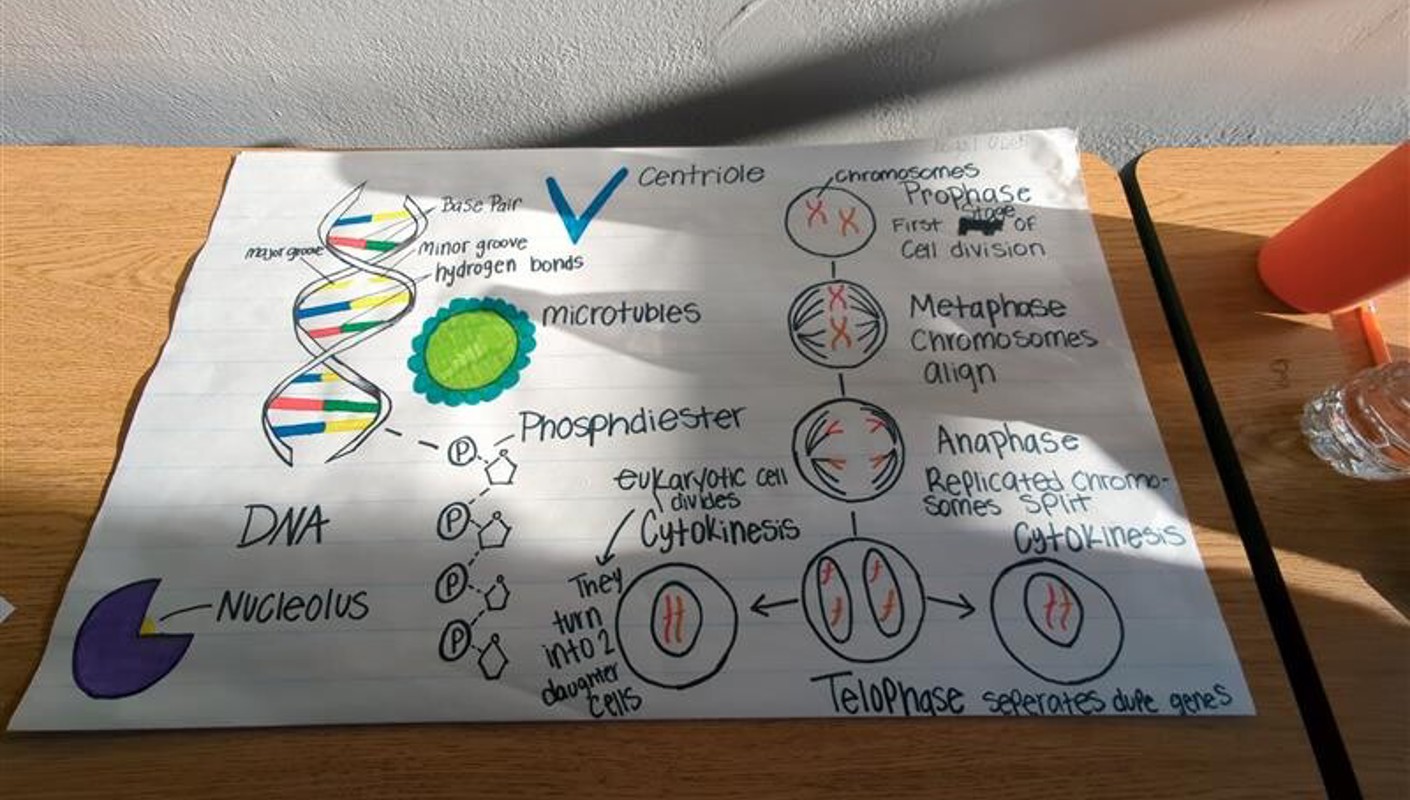 Base Pair
major groove
Minor groove
hydrogen bonds
Centriole
microtubles
Phosphdiester
P
P
P
P
DNA
Nucleolus
chromosomes
Prophase
First Stage of
Cell division
Metaphase
Chromosomes
align
Anaphase
Replicated Chromo-
somes split
Cytokinesis
eukaryotic cell
divides
Cytokinesis
They
turn
into 2
daughter
cells
Telophase seperates dupe genes